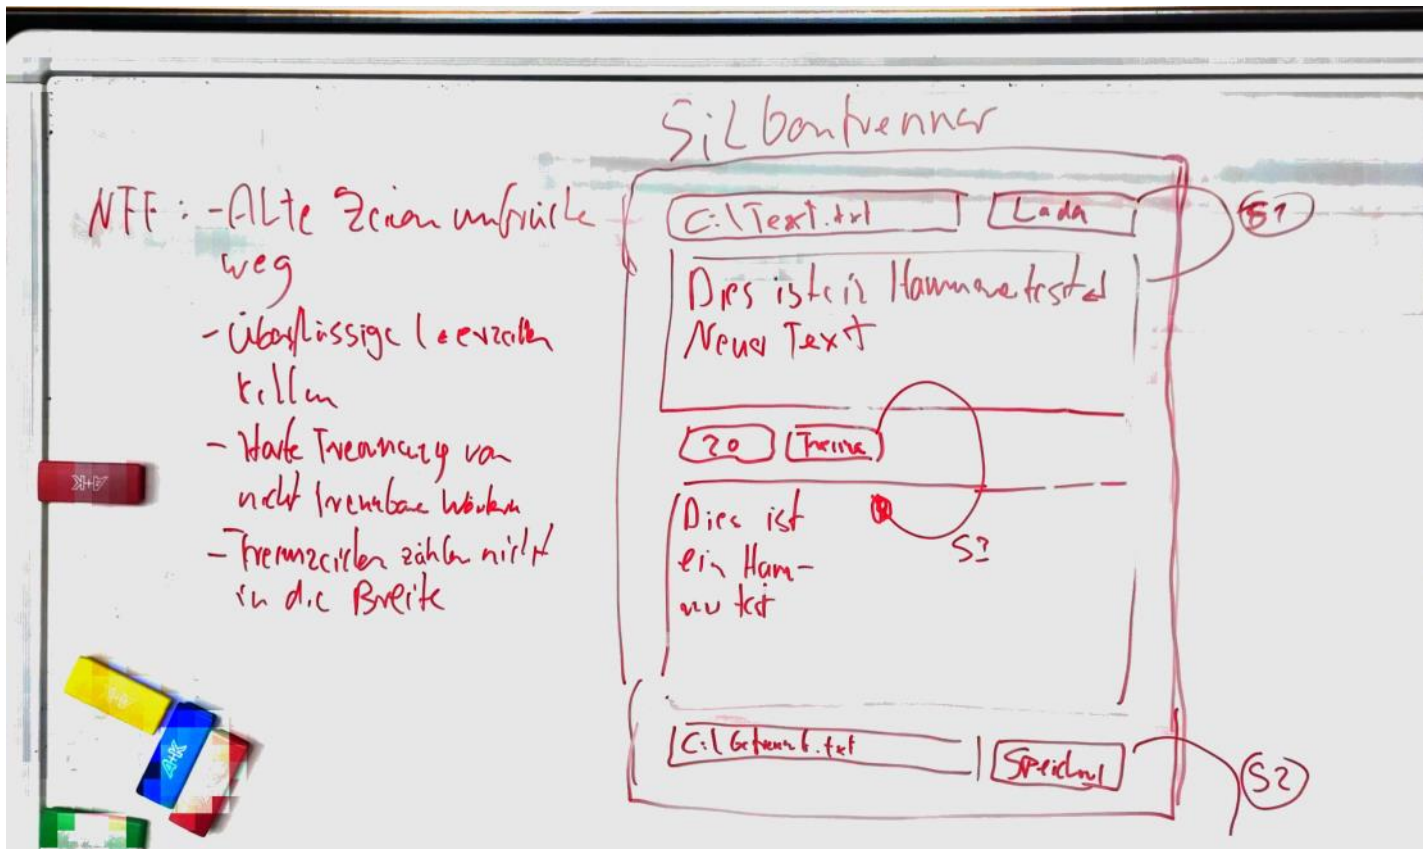 Silbentrenner
NFF: - Alte Zeilenumbrüche
weg
- Überflüssige Leerzeilen
killen
- Harte Trennung von
nicht trennbare Wörtern
- Trennzeichen zählen nicht
in die Breite
C:\Text.txt
Laden
S1
Dies ist ein
Neuer Text
20
Trenne
Dies ist
ein Ham-
test
C:\Getrennt.txt
Speichern
S2
A+K
A+K